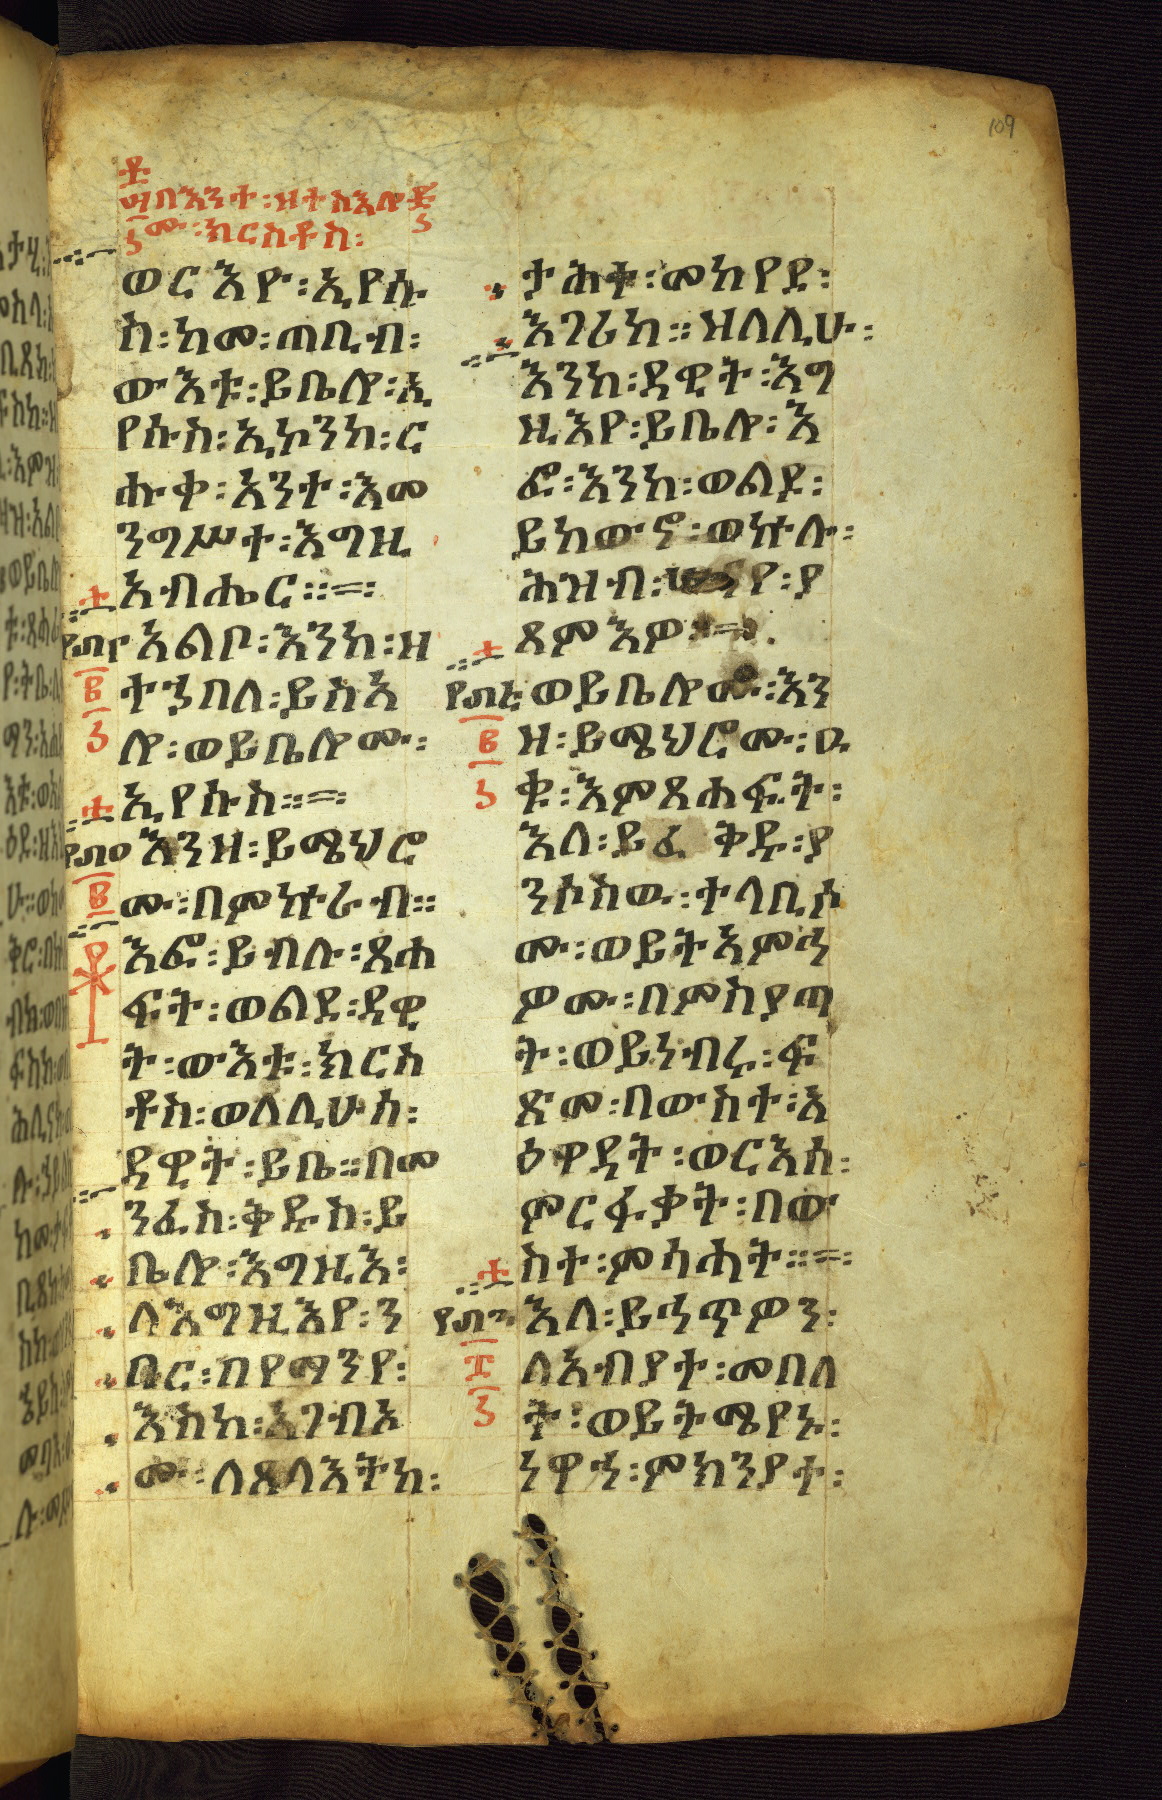 109
በእንተ፡ዘተስእሎ
ሙ፡ክርስቶስ፡
ወርእዮ፡ኢየሱ
ስ፡ከመ፡ጠቢብ፡
ውእቱ፡ይቤሎ፡ኢ
የሱስ፡ኢኮንከ፡ር
ሑቀ፡እንተ፡እመ
ንግሥተ፡እግዚ
አብሔር፡፡=፡
አልቦ፡እንከ፡ዘ
ተኀበለ፡ይስእ
ሎ፡ወይቤሎሙ፡
ኢየሱስ፡፡=፡
እንዘ፡ይሜህሮ
ሙ፡በምኵራብ፡፡
እፎ፡ይብሉ፡ጸሐ
ፍት፡ወልደ፡ዳዊ
ት፡ውእቱ፡ክርስ
ቶስ፡ወለሊሁሰ፡
ዳዊት፡ይቤ፡፡በመ
ንፈስ፡ቅዱስ፡ይ
ቤሎ፡እግዚእ፡
ለእግዚእየ፡ን
በር፡በየማንየ፡
እስከ፡አገብእ
ሙ፡ለጸላእትከ፡
ታሕተ፡መከየደ፡
እገሪከ፡፡ዝለሊሁ፡
እንከ፡ዳዊት፡እግ
ዚእየ፡ይቤሎ፡እ
ፎ፡እንከ፡ወልዶ፡
ይከውኖ፡ወኵሉ፡
ሕዝብ፡
ጸምእዎ፡
ወይቤሎሙ፡እን
ዘ፡ይሜህሮሙ፡ዑ
ቁ፡እምጸሐፍት፡
እለ፡ይፈቅዱ፡ያ
ንሶስዉ፡ተላቢሶ
ሙ፡ወይትአምኅ
ዎሙ፡በምስያጣ
ት፡ወይነብሩ፡ፍ
ጽመ፡በውስተ፡አ
ዕዋዳት፡ወርእሰ፡
ምርፋቃት፡በው
ስተ፡ምሳሓት፡፡=፡
እለ፡ይኀጥዎን፡
ለአብያተ፡መበለ
ት፡ወይትሜየኑ፡
ነዋኀ፡ምክንያተ፡